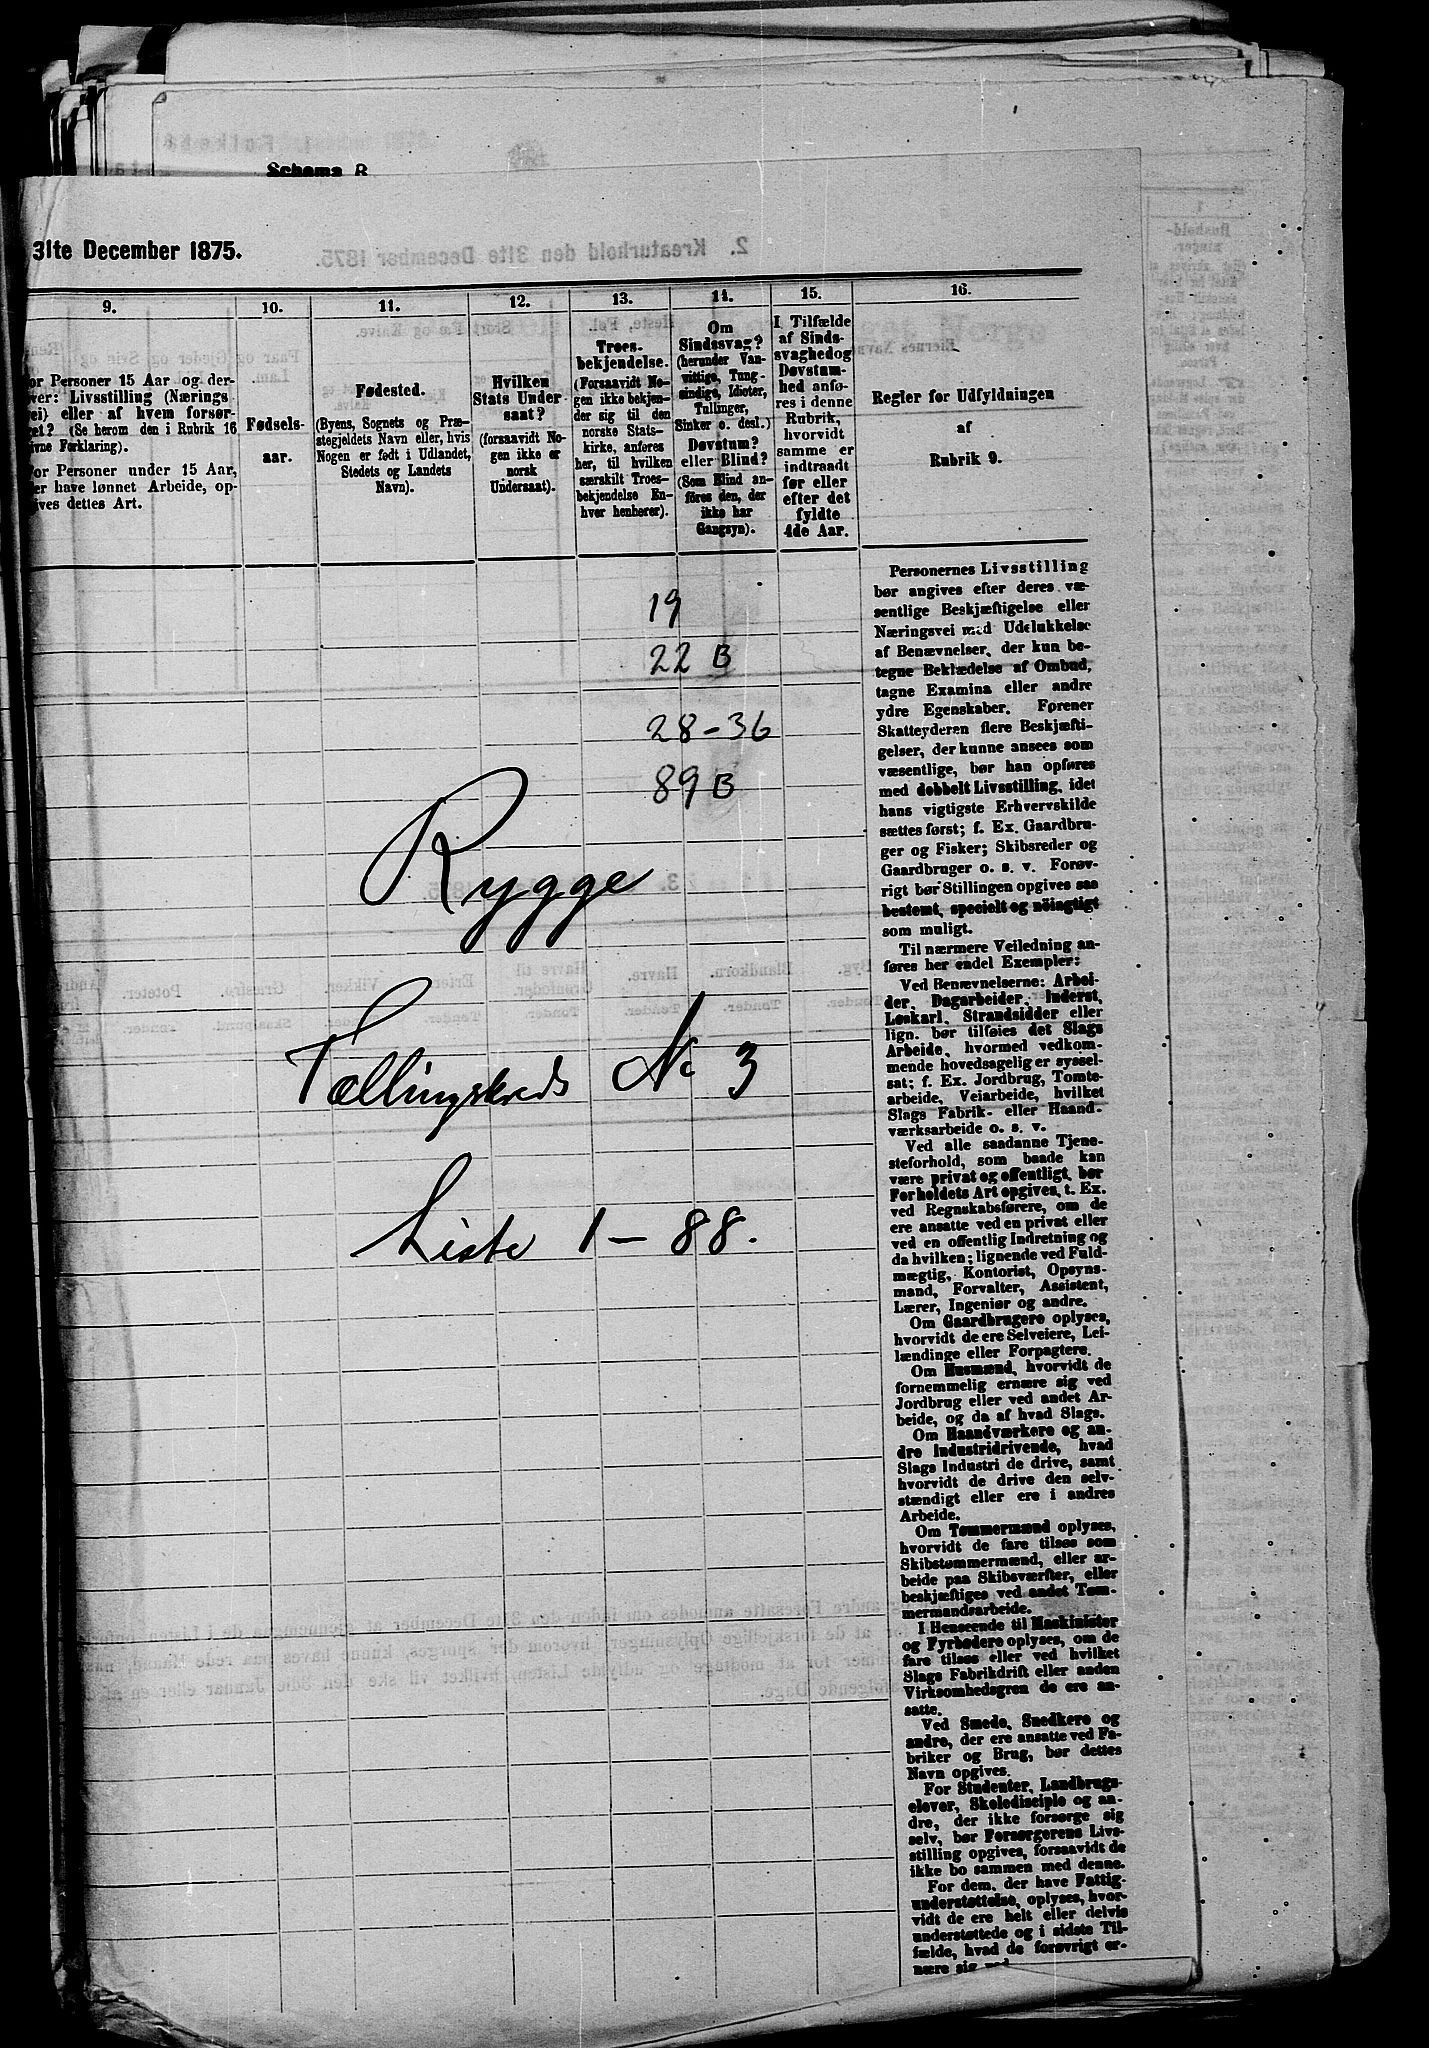 Schema B
31te December 1875.
9.
or Personer 15 Aar og der-
ver: Livsstilling (Nærings
vei) eller af hvem forsør-
get? (Se herom den i Rubrik 16
ivne Forklaring).
or Personer under 15 Aar,
er have lønnet Arbeide, op-
gives dettes Art.
10.
Fødsels-
aar.
11.
Fødested.
(Byens, Sognets og Præ-
stegjeldets Navn eller, hvis
Nogen er født i Udlandet,
Stedets og Landets
Navn).
12.
Hvilken
Stats Under
saat?
(forsaavidt No-
gen ikke er
norsk
Undersaat).
13.
Troes-
bekjendelse.
(Forsaavidt No-
gen ikke bekjen-
der sig til den
norske Stats-
kirke, anføres
her, til hvilken
særskilt Troes-
bekjendelse En-
hver henhører).
14.
Om
Sindssvag?
(herunder Van-
vittige, Tung-
sindige, Idioter,
Tullinger,
Sinker o. desl.)
Døvstum?
eller Blind?
(Som Blind an-
føres den, der
ikke har
Gangsyn).
15.
I Tilfælde
af Sinds-
svaghed og
Døvstum-
hed anfø-
res i denne
Rubrik,
hvorvidt
samme er
indtraadt
før eller
efter det
fyldte
4de Aar.
16.
Regler for Udfyldningen
af
Rubrik 9.
19
22 B
28-36
89 B
Rygge
Tællingskreds No 3
Liste 1 - 88.
Personernes Livsstilling
bør angives efter deres væ-
sentlige Beskjæftigelse eller
Næringsvei med Udelukkelse
af Benævnelser, der kun be-
tegne Beklædelse af Ombud,
tagne Examina eller andre
ydre Egenskaber. Forener
Skatteyderen flere Beskjæfti-
gelser, der kunne ansees som
væsentlige, bør han opføres
med dobbelt Livsstilling, idet
hans vigtigste Erhvervskilde
sættes først; f. Ex. Gaardbru-
ger og Fisker; Skibsreder og
Gaardbruger o. s. v. Forøv-
rigt bør Stillingen opgives saa
bestemt, specielt og nöiagtigt
som muligt.
Til nærmere Veiledning an-
føres her endel Exempler:
Ved Benævnelserne: Arbei-
der, Dagarbeider, Inderst,
Løskarl, Strandsidder eller
lign. bør tilføies det Slags
Arbeide, hvormed vedkom-
mende hovedsagelig er syssel-
sat; f. Ex. Jordbrug, Tomte-
arbeide, Veiarbeide, hvilket
Slags Fabrik- eller Haand-
værksarbeide o. s. v.
Ved alle saadanne Tjene-
steforhold, som baade kan
være privat og offentligt, bør
Forholdets Art opgives, t. Ex.
ved Regnskabsførere, om de
ere ansatte ved en privat eller
ved en offentlig Indretning og
da hvilken; lignende ved Fuld-
mægtig, Kontorist, Opsyns-
mand, Forvalter, Assistent,
Lærer, Ingeniør og andre.
Om Gaardbrugere oplyses,
hvorvidt de ere Selveiere, Lei-
lændinge eller Forpagtere.
Om Husmænd, hvorvidt de
fornemmelig ernære sig ved
Jordbrug eller ved andet Ar-
beide, og da af hvad Slags.
Om Haandværkere og an-
dre Industridrivende, hvad
Slags Industri de drive, samt
hvorvidt de drive den selv-
stændigt eller ere i andres
Arbeide.
Om Tømmermænd oplyses,
hvorvidt de fare tilsøs som
Skibstømmermænd, eller ar-
beide paa Skibsværfter, eller
beskjæftiges ved andet Tøm-
mermandsarbeide.
I Henseende til Maskinister
og Fyrbødere oplyses, om de
fare tilsøs eller ved hvilket
Slags Fabrikdrift eller anden
Virksomhedsgren de ere an-
satte.
Ved Smede, Snedkere og
andre, der ere ansatte ved Fa-
briker og Brug, bør dettes
Navn opgives.
For Studenter, Landbrugs-
elever, Skoledisciple og an-
dre, der ikke forsørge sig
selv, bør Forsørgerens Livs-
stilling opgives, forsaavidt de
ikke bo sammen med denne.
For dem, der have Fattig-
understøttelse, oplyses, hvor-
vidt de ere helt eller delvis
understøttede og i sidste Til-
fælde, hvad de forøvrigt er-
nære sig ved